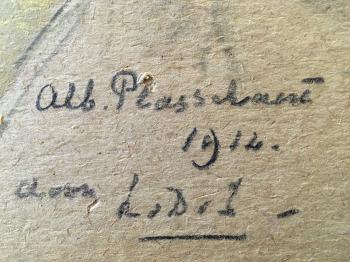 Alb. Plasschaert
1914.
door L.D.L